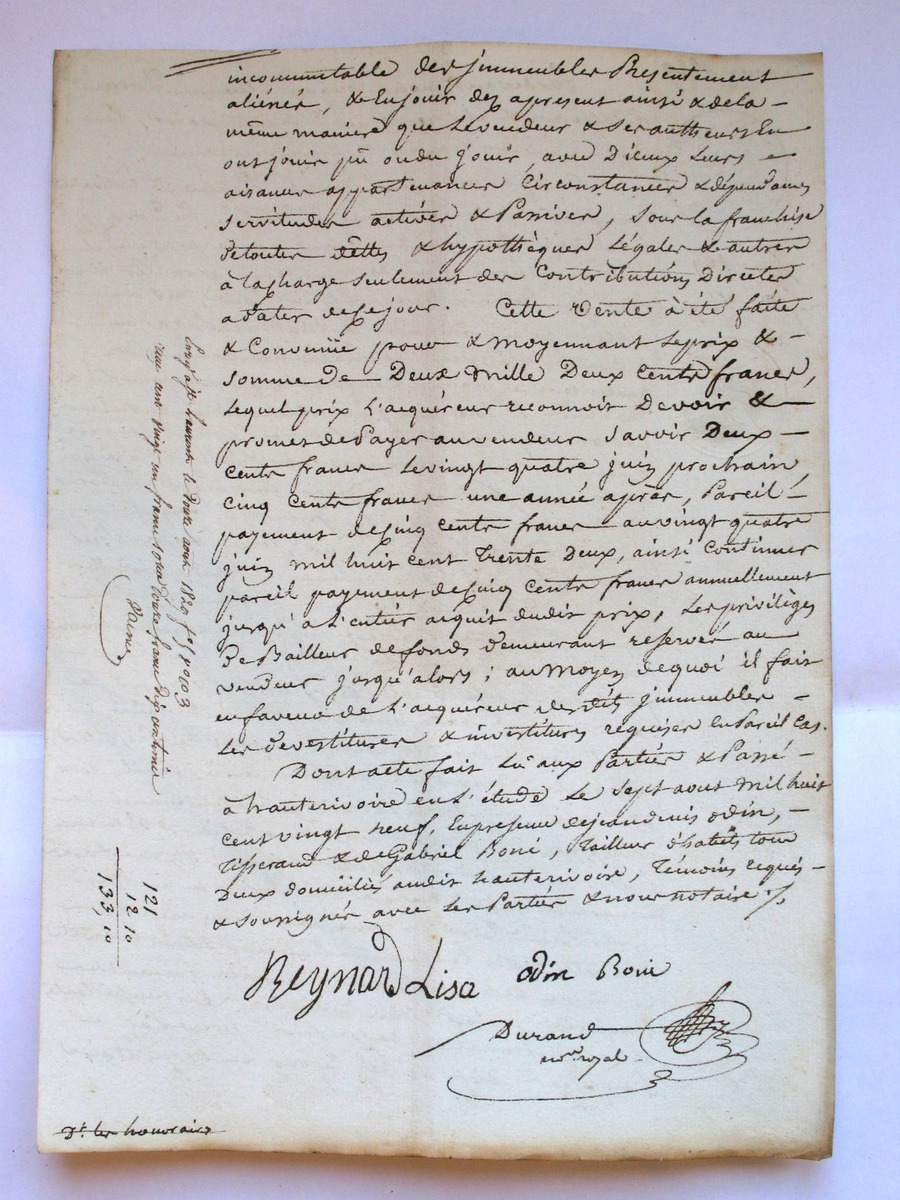 incommutable des jmmeubles Présentement
aliénés, & En jouir dez apresent ainsi & de la –
même maniere que Le vendeur & ses autheurs En
ont jouir pû ou du jouir, avec Dieux Leurs –
aisances appartenances Circonstances & dépendances
Servitudes actives & Passives, sous la franchise
de toutes dettes & hypothèques Légales & autres
à la charge seulement des Contributions Directes
a dater de ce jour. Cette Vente à été faite
& Convenüe pour & moyennant Le prix & –
somme de Deux Mille Deux Cents francs,
Lequel prix L'acquéreur reconnoit Devoir & –
promet de Payer au vendeur Savoir Deux –
Cents francs Le vingt quatre juin prochain,
Cinq Cents francs une année après, Pareil –
payement de Cinq Cents francs au vingt quatre
juin mil huit cent Trente Deux, ainsi Continuer
pareil payement de Cinq Cents francs annuellement
jusqu'à L'entier acquit dudit prix, Les privilèges
De Bailleur de fonds demeurant reservés au
vendeur jusqu'alors; au moyen de quoi il fait
en faveur de L'acquéreur desdits jmmeubles –
Les devestitures & investitures requises En Pareil Cas.
Dont acte fait Lû aux Parties & Passé –
à hauterivoire en L'étude Le sept aout mil huit
cent vingt neuf, En presence de jean denis odin, –
Tisserand & de Gabriel Boni, Tailleur d'habits tous
Deux domiciliés audit hauterivoire, Témoins requis –
& soussignés avec Les Parties & nous notaire
Reynard Lisa odin Boni
Durand
nore. royal
Enregistré à St Laurent le Douze aout 1829 fo
cent vingt un francs douze francs dix centimes
121
12 10
133, 10
Dt. les honoraires